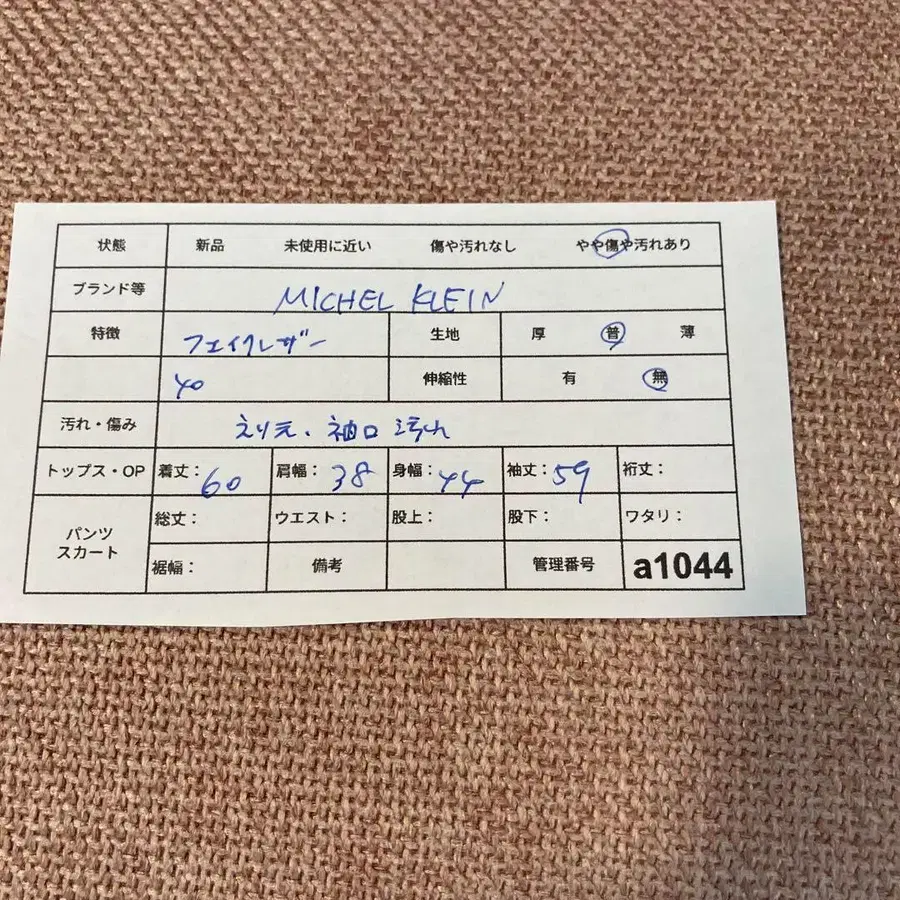 状態 新品 未使用に近い 傷や汚れなし やや傷や汚れあり
ブランド等 MICHEL KLEIN
特徴 フェイクレザー 生地 厚 普 薄
40 伸縮性 有 無
汚れ・傷み えり元、袖口汚れ
トップス・OP 着丈： 60 肩幅： 38 身幅： 44 袖丈： 59 裄丈：
パンツ スカート 総丈： ウエスト： 股上： 股下： ワタリ：
裾幅： 備考 管理番号 a1044